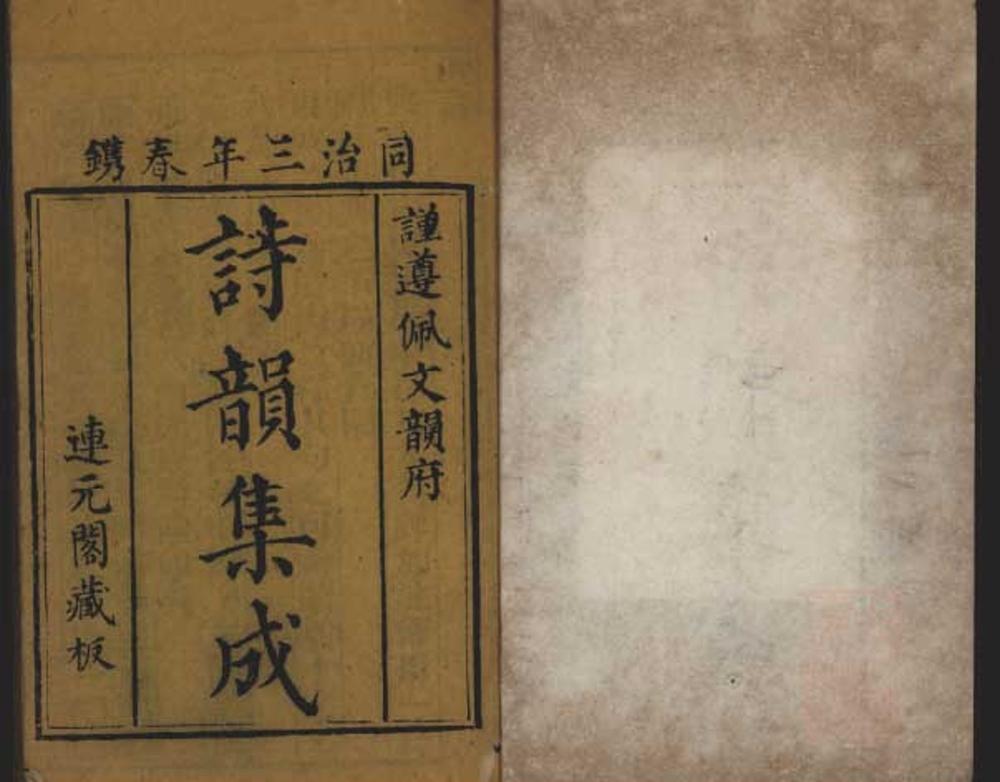 同治三年春鐫
謹遵佩文韻府
詩韻集成
連元閣藏板